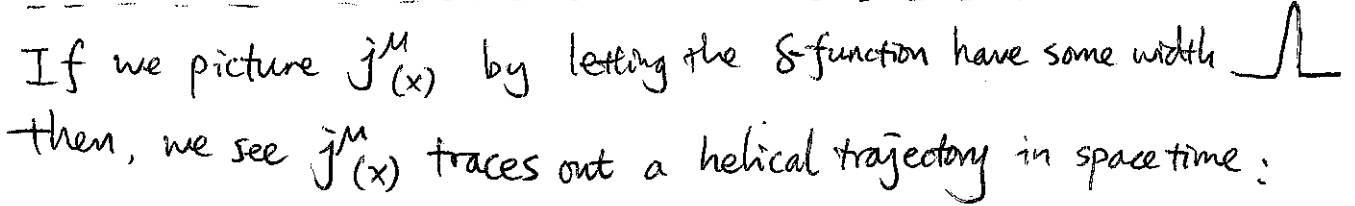 If we picture j^μ(x) by letting the δ-function have some width
then, we see j^μ(x) traces out a helical trajectory in spacetime: